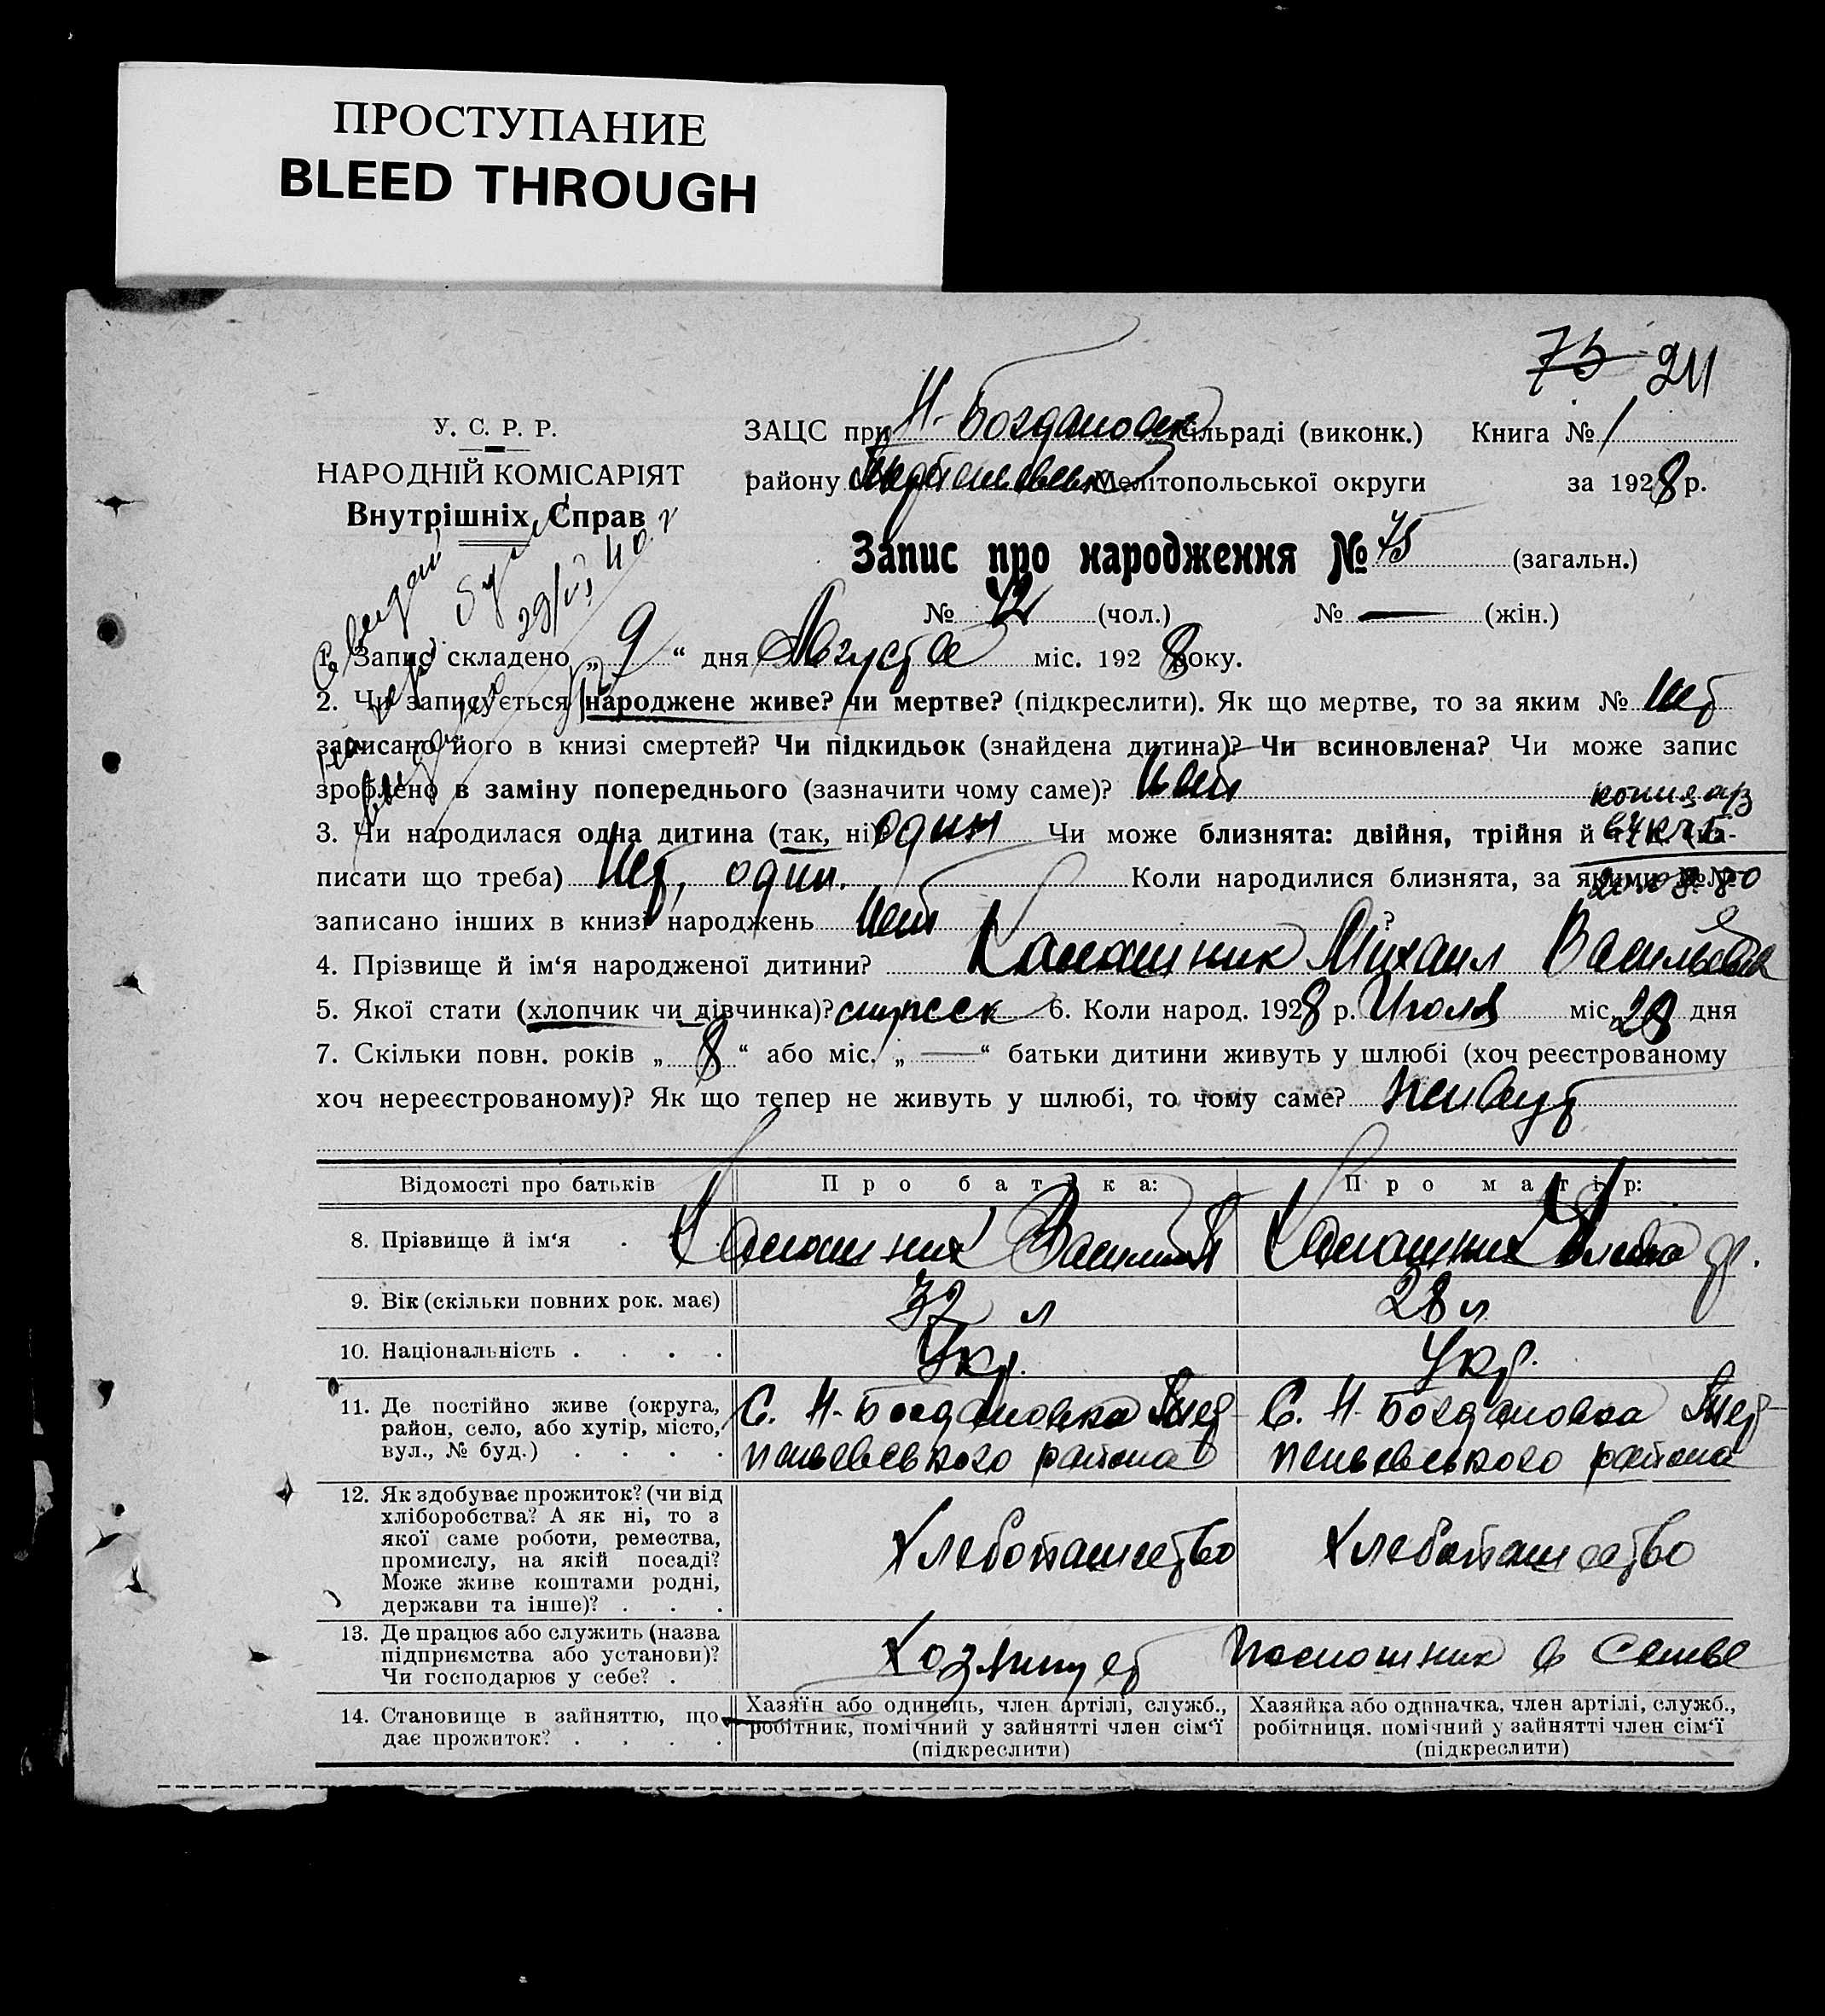 ПРОСТУПАНИЕ
BLEED THROUGH
75 211
У. С. Р. Р.
НАРОДНІЙ КОМІСАРІЯТ
Внутрішніх Справ
ЗАЦС при Н-Богдановск сільраді (виконк.) Книга № 1
району Мелітопольської округи за 1928 р.
Запис про народження № 75 (загальн.)
№ 42 (чол.) № — (жін.)
1. Запис складено „ 9 “ дня Августа міс. 1928 року.
2. Чи записується народжене живе? чи мертве? (підкреслити). Як що мертве, то за яким № нет
записано його в книзі смертей? Чи підкидьок (знайдена дитина)? Чи всиновлена? Чи може запис
зроблено в заміну попереднього (зазначити чому саме)? нет
3. Чи народилася одна дитина (так, ні) один Чи може близнята: двійня, трійня й
писати що треба) Нет, один. Коли народилися близнята, за якими №№
записано інших в книзі народжень нет ?
4. Прізвище й ім‘я народженої дитини? Михаил Васильевич
5. Якої стати (хлопчик чи дівчинка)? 6. Коли народ. 1928 р. Июля міс. 29 дня
7. Скільки повн. років „ 8 “ або міс. „ — “ батьки дитини живуть у шлюбі (хоч реєстрованому
хоч нереєстрованому)? Як що тепер не живуть у шлюбі, то чому саме? живут
Відомості про батьків
Про батька:
Про матір:
8. Прізвище й ім‘я . . .
Василий
9. Вік (скільки повних рок. має)
32 л
28 л
10. Національність . . . .
Укр.
Укр.
11. Де постійно живе (округа,
район, село, або хутір, місто,
вул., № буд.) . . . .
С. Н-Богдановка Тер-
пеньевского района
С. Н-Богдановка Тер-
пеньевского района
12. Як здобуває прожиток? (чи від
хліборобства? А як ні, то з
якої саме роботи, ремества,
промислу, на якій посаді?
Може живе коштами родні,
держави та інше)? . . .
Хлебопашество
Хлебопашество
13. Де працює або служить (назва
підприємства або установи)?
Чи господарює у себе? .
Хозяинует
помошник в семье
14. Становище в зайняттю, що
дає прожиток? . . . .
Хазяїн або одинець, член артілі, служб.,
робітник, помічний у зайнятті член сім‘ї
(підкреслити)
Хазяйка або одиначка, член артілі, служб.,
робітниця. помічний у зайнятті член сім‘ї
(підкреслити)